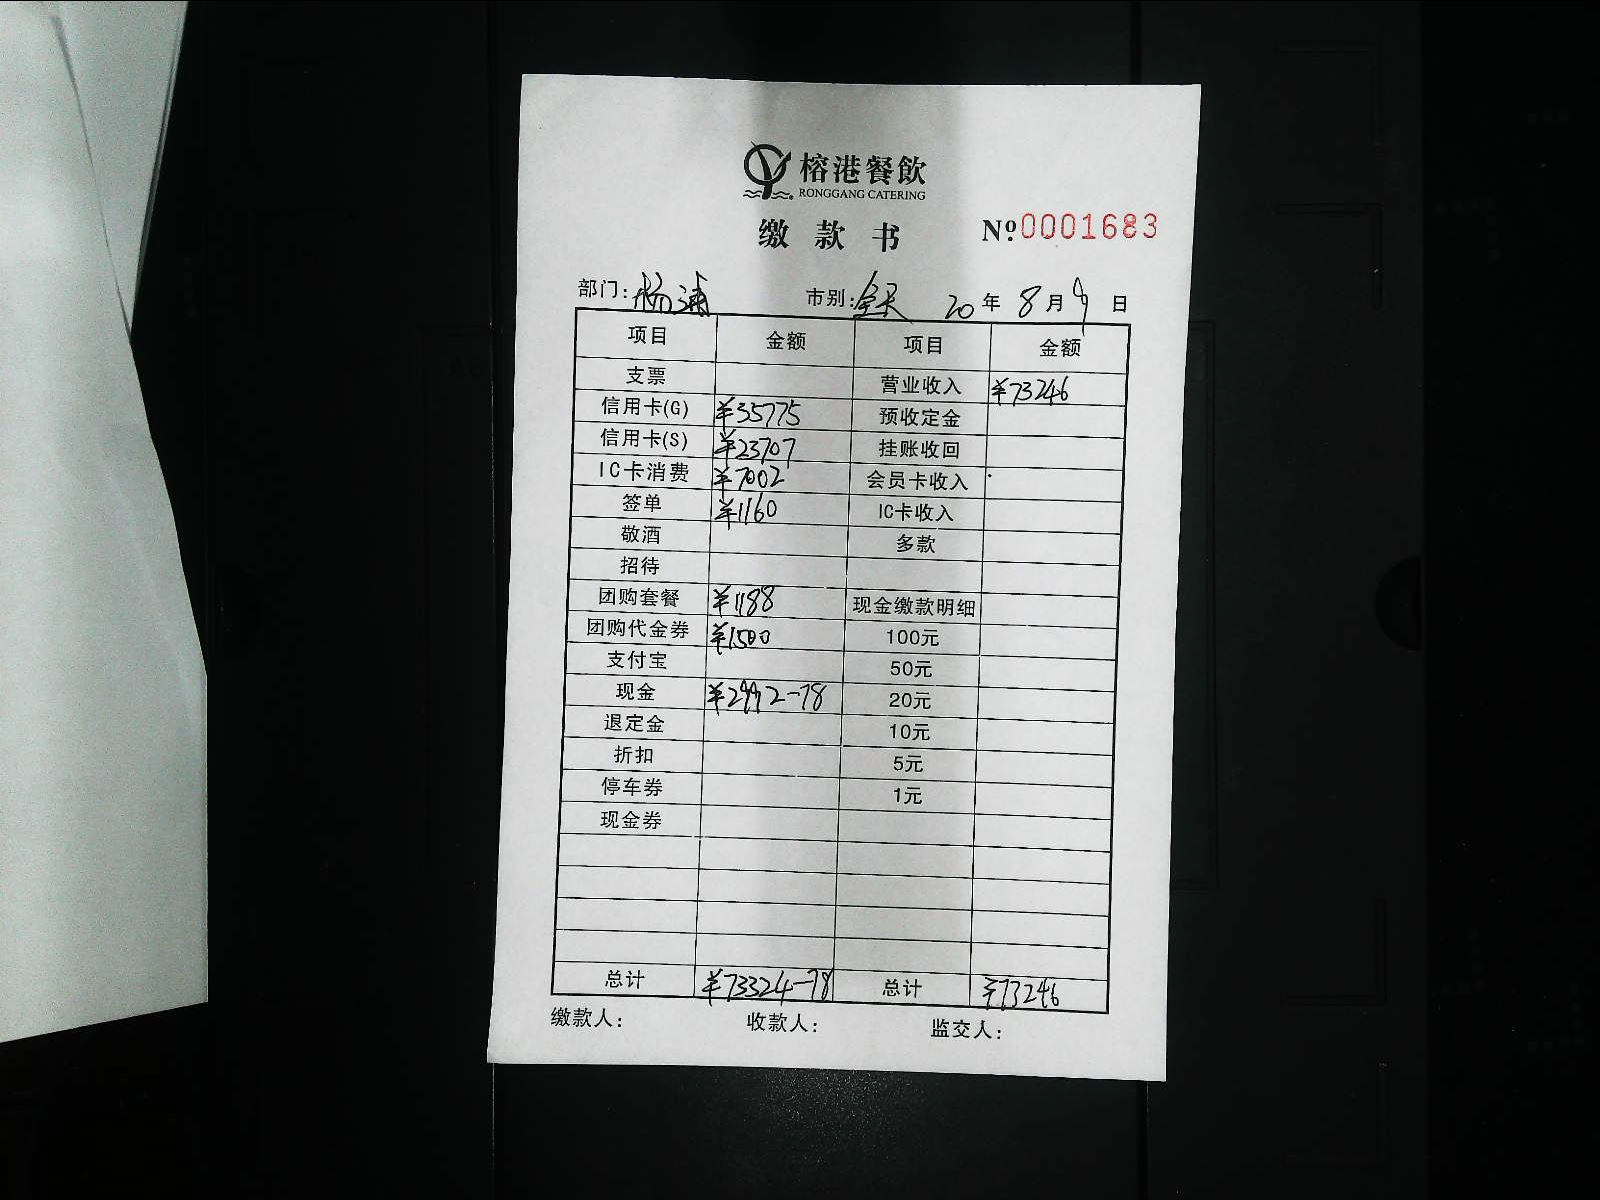 榕港餐飲
RONGGANG CATERING
缴款书 Nº0001683
部门：杨浦 市别：全天 20年8月9日
项目 金额 项目 金额
支票 营业收入 ¥73246
信用卡(G) ¥35775 预收定金
信用卡(S) ¥23707 挂账收回
IC卡消费 ¥7002 会员卡收入
签单 ¥1160 IC卡收入
敬酒 多款
招待
团购套餐 ¥1188 现金缴款明细
团购代金券 ¥1500 100元
支付宝 50元
现金 ¥2992-78 20元
退定金 10元
折扣 5元
停车券 1元
现金券
总计 ¥73324-78 总计 ¥73246
缴款人： 收款人： 监交人：